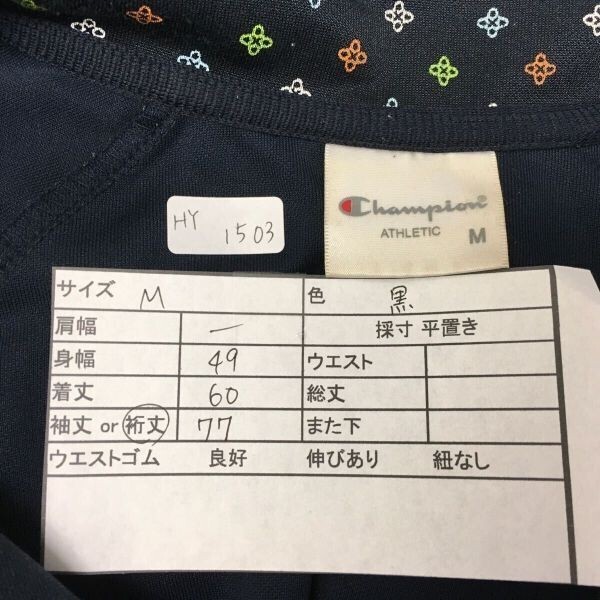 Champion
ATHLETIC M
HY 1503
サイズ M 色 黒
肩幅 — 採寸 平置き
身幅 49 ウエスト
着丈 60 総丈
袖丈 or 裄丈 77 また下
ウエストゴム 良好 伸びあり 紐なし